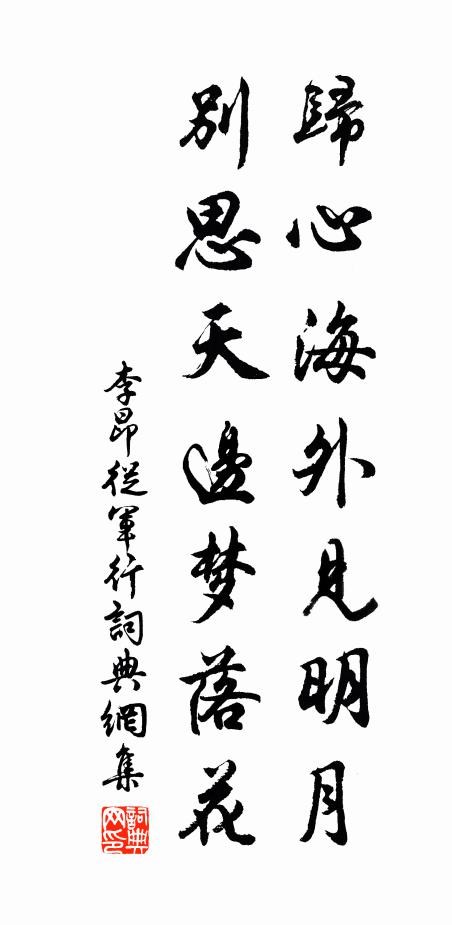 歸心海外見明月
別思天邊梦落花
李昂從軍行詞典網集
詞典网印